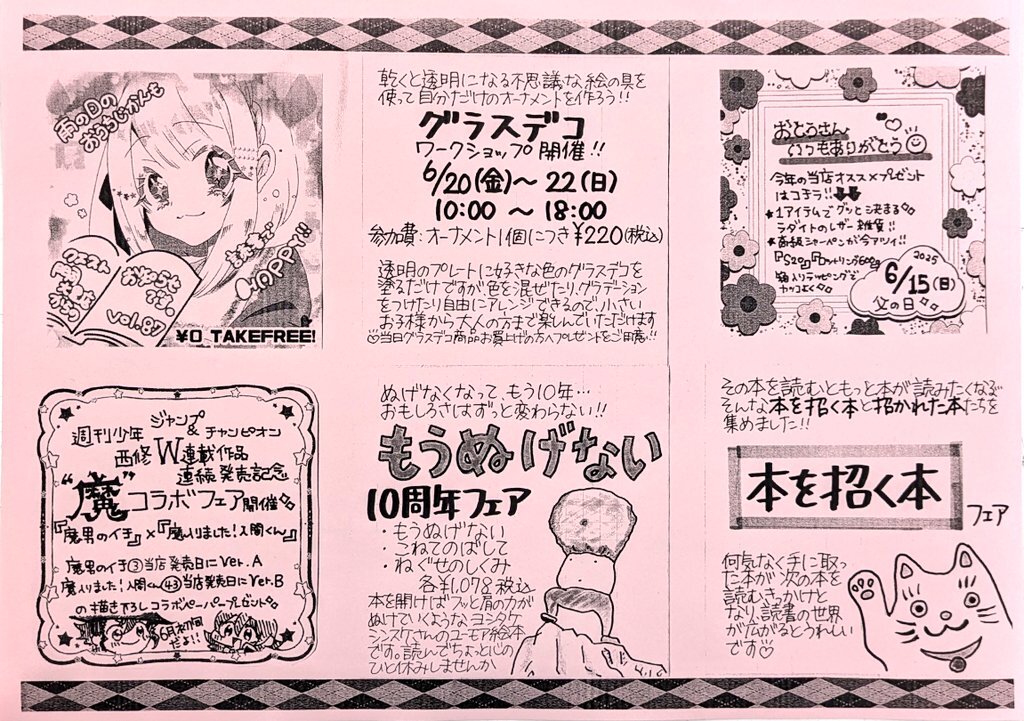 雨のDの
おうちじかんも
おかもちで
HAPPY!!
おかもちな。
vol.87
¥0 TAKEFREE!
乾くと透明になる不思議な絵の具を
使って自分だけのオーナメントを作ろう!!
グラスデコ
ワークショップ開催!!
6/20(金)〜22(日)
10:00 〜 18:00
参加費:オーナメント1個につき¥220(税込)
透明のプレートに好きな色のグラスデコを
塗るだけですが色を混ぜたり、グラデーション
をつけたり自由にアレンジできるので、小さい
お子様から大人の方まで楽しんでいただけます
♡当日グラスデコ商品お買上げの方へプレゼントをご用意!!
おとうさん
いつもありがとう
今年の当店オススメプレゼント
はコチラ!!
★1アイテムでグッと決まる
ラダイトのレザー雑貨!!
★高級シャーペンが今アツイ!!
『S20』『ロットリング600』
箱入りラッピングで
カッコよく
2025
6/15(日)
父の日
週刊少年 ジャンプ & チャンピオン
西修W連載作品
連続発売記念
“魔”コラボフェア開催
『魔男のイチ』×『魔入りました!入間くん』
魔男のイチ③当店発売日にVer.A
魔入りました!入間くん㊸当店発売日にVer.B
の描き下ろしコラボペーパープレゼント
6月初旬
だよ!!
ぬげなくなって、もう10年…
おもしろさはずっと変わらない!!
もうぬげない
10周年フェア
・もうぬげない
・こねてのばして
・ねぐせのしくみ
各¥1,078税込
本を開けばフッと肩の力が
ぬけていくようなヨシタケ
シンスケさんのユーモア絵本
です。読んでちょっと心の
ひと休みしませんか
その本を読むともっと本が読みたくなるぞ
そんな本を招く本と招かれた本たちを
集めました!!
本を招く本
フェア
何気なく手に取っ
た本が次の本を
読むきっかけと
なり、読書の世界
が広がるとうれしい
です♡